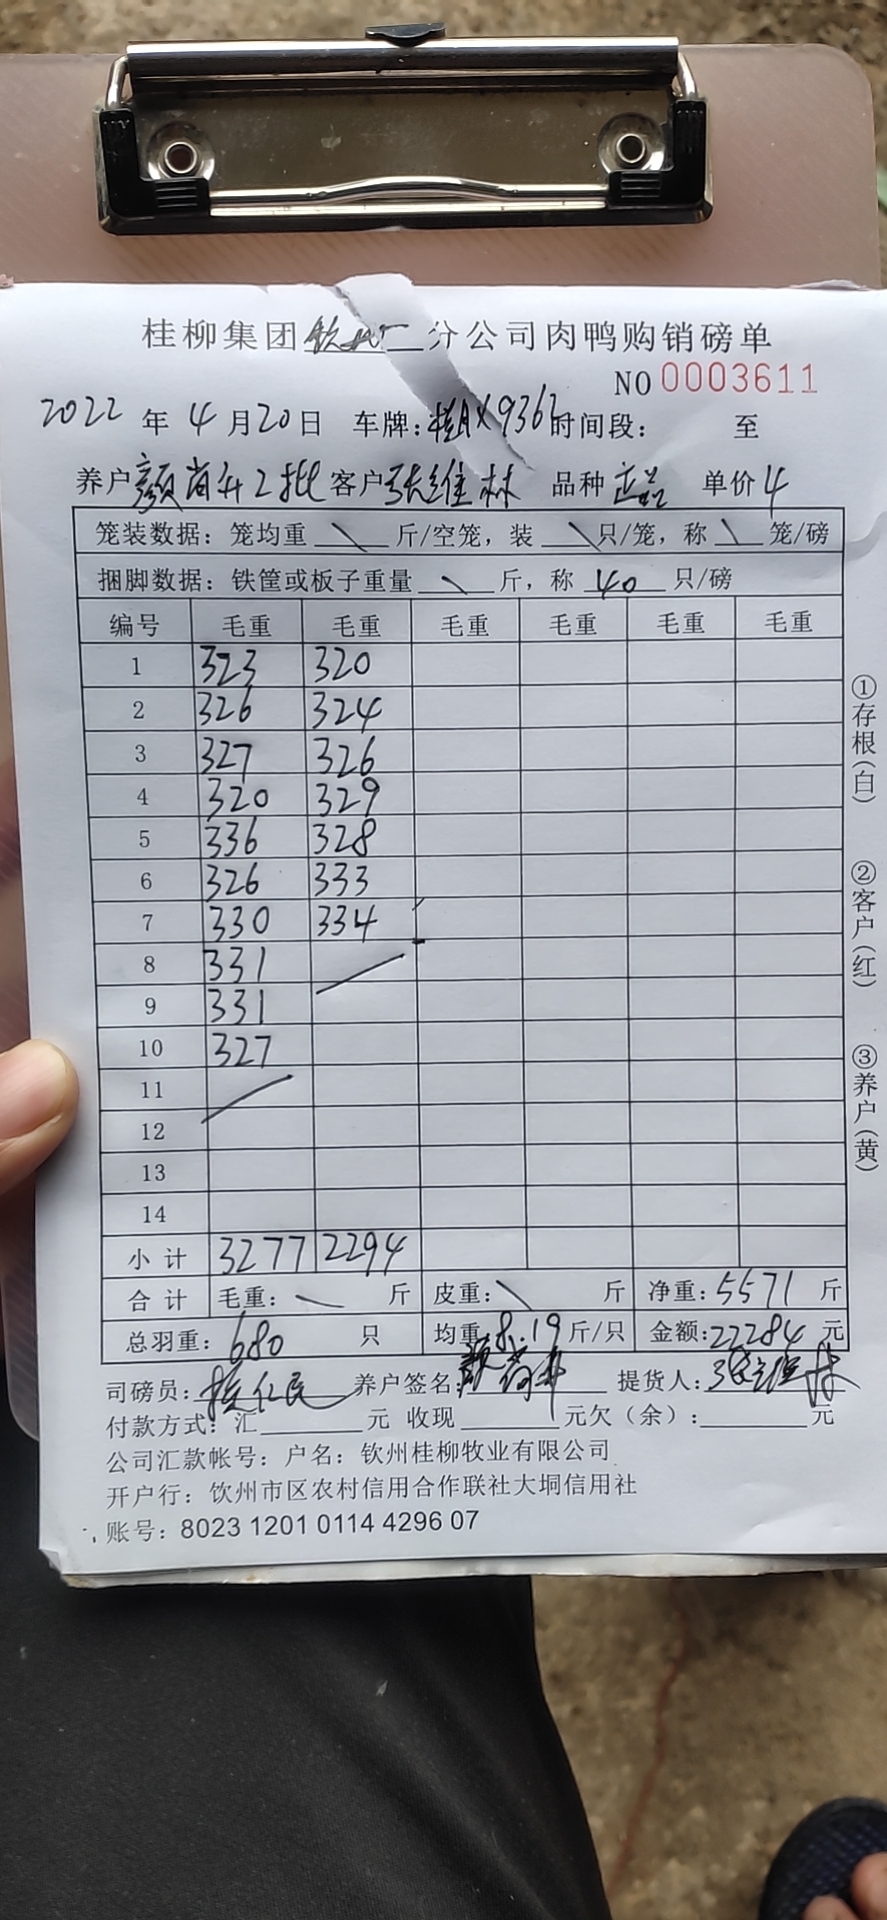 桂柳集团钦州二分公司肉鸭购销磅单
NO 0003611
2022 年 4 月 20 日 车牌: 时间段: 至
养户 颜 升2批 客户 张维林 品种 单价 4
笼装数据: 笼均重 \ 斤/空笼, 装 \ 只/笼, 称 \ 笼/磅
捆脚数据: 铁筐或板子重量 \ 斤, 称 40 只/磅
编号 毛重 毛重 毛重 毛重 毛重 毛重
1 323 320
2 326 324
3 327 326
4 320 329
5 336 328
6 326 333
7 330 334
8 331
9 331
10 327
11
12
13
14
小 计 3277 2294
合 计 毛重: 斤 皮重: \ 斤 净重: 5571 斤
总羽重: 680 只 均重: 8.19 斤/只 金额: 22284 元
司磅员: 养户签名: 提货人: 张维林
付款方式: 汇 元 收现 元 欠(余): 元
公司汇款帐号: 户名: 钦州桂柳牧业有限公司
开户行: 钦州市区农村信用合作联社大垌信用社
账号: 8023 1201 0114 4296 07
①存根(白)
②客户(红)
③养户(黄)